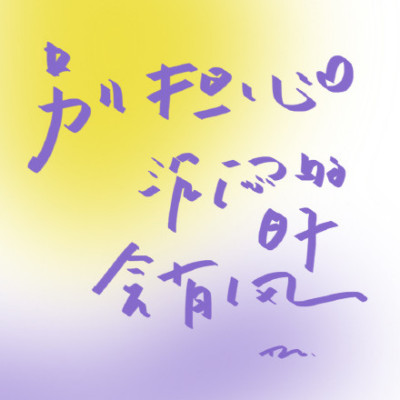 别担心
沉闷的
时
会有风